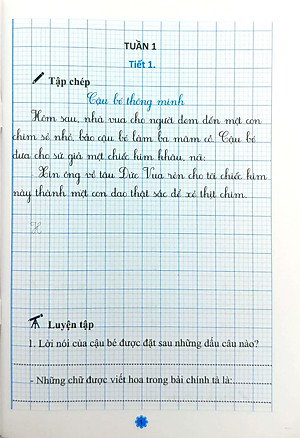 TUẦN 1
Tiết 1.
Tập chép
Cậu bé thông minh
Hôm sau, nhà vua cho người đem đến một con
chim sẻ nhỏ, bảo cậu bé làm ba mâm cỗ. Cậu bé
đưa cho sứ giả một chiếc kim khâu, nói:
Xin ông về tâu Đức Vua rèn cho tôi chiếc kim
này thành một con dao thật sắc để xẻ thịt chim.
H
Luyện tập
1. Lời nói của cậu bé được đặt sau những dấu câu nào?
- Những chữ được viết hoa trong bài chính tả là: